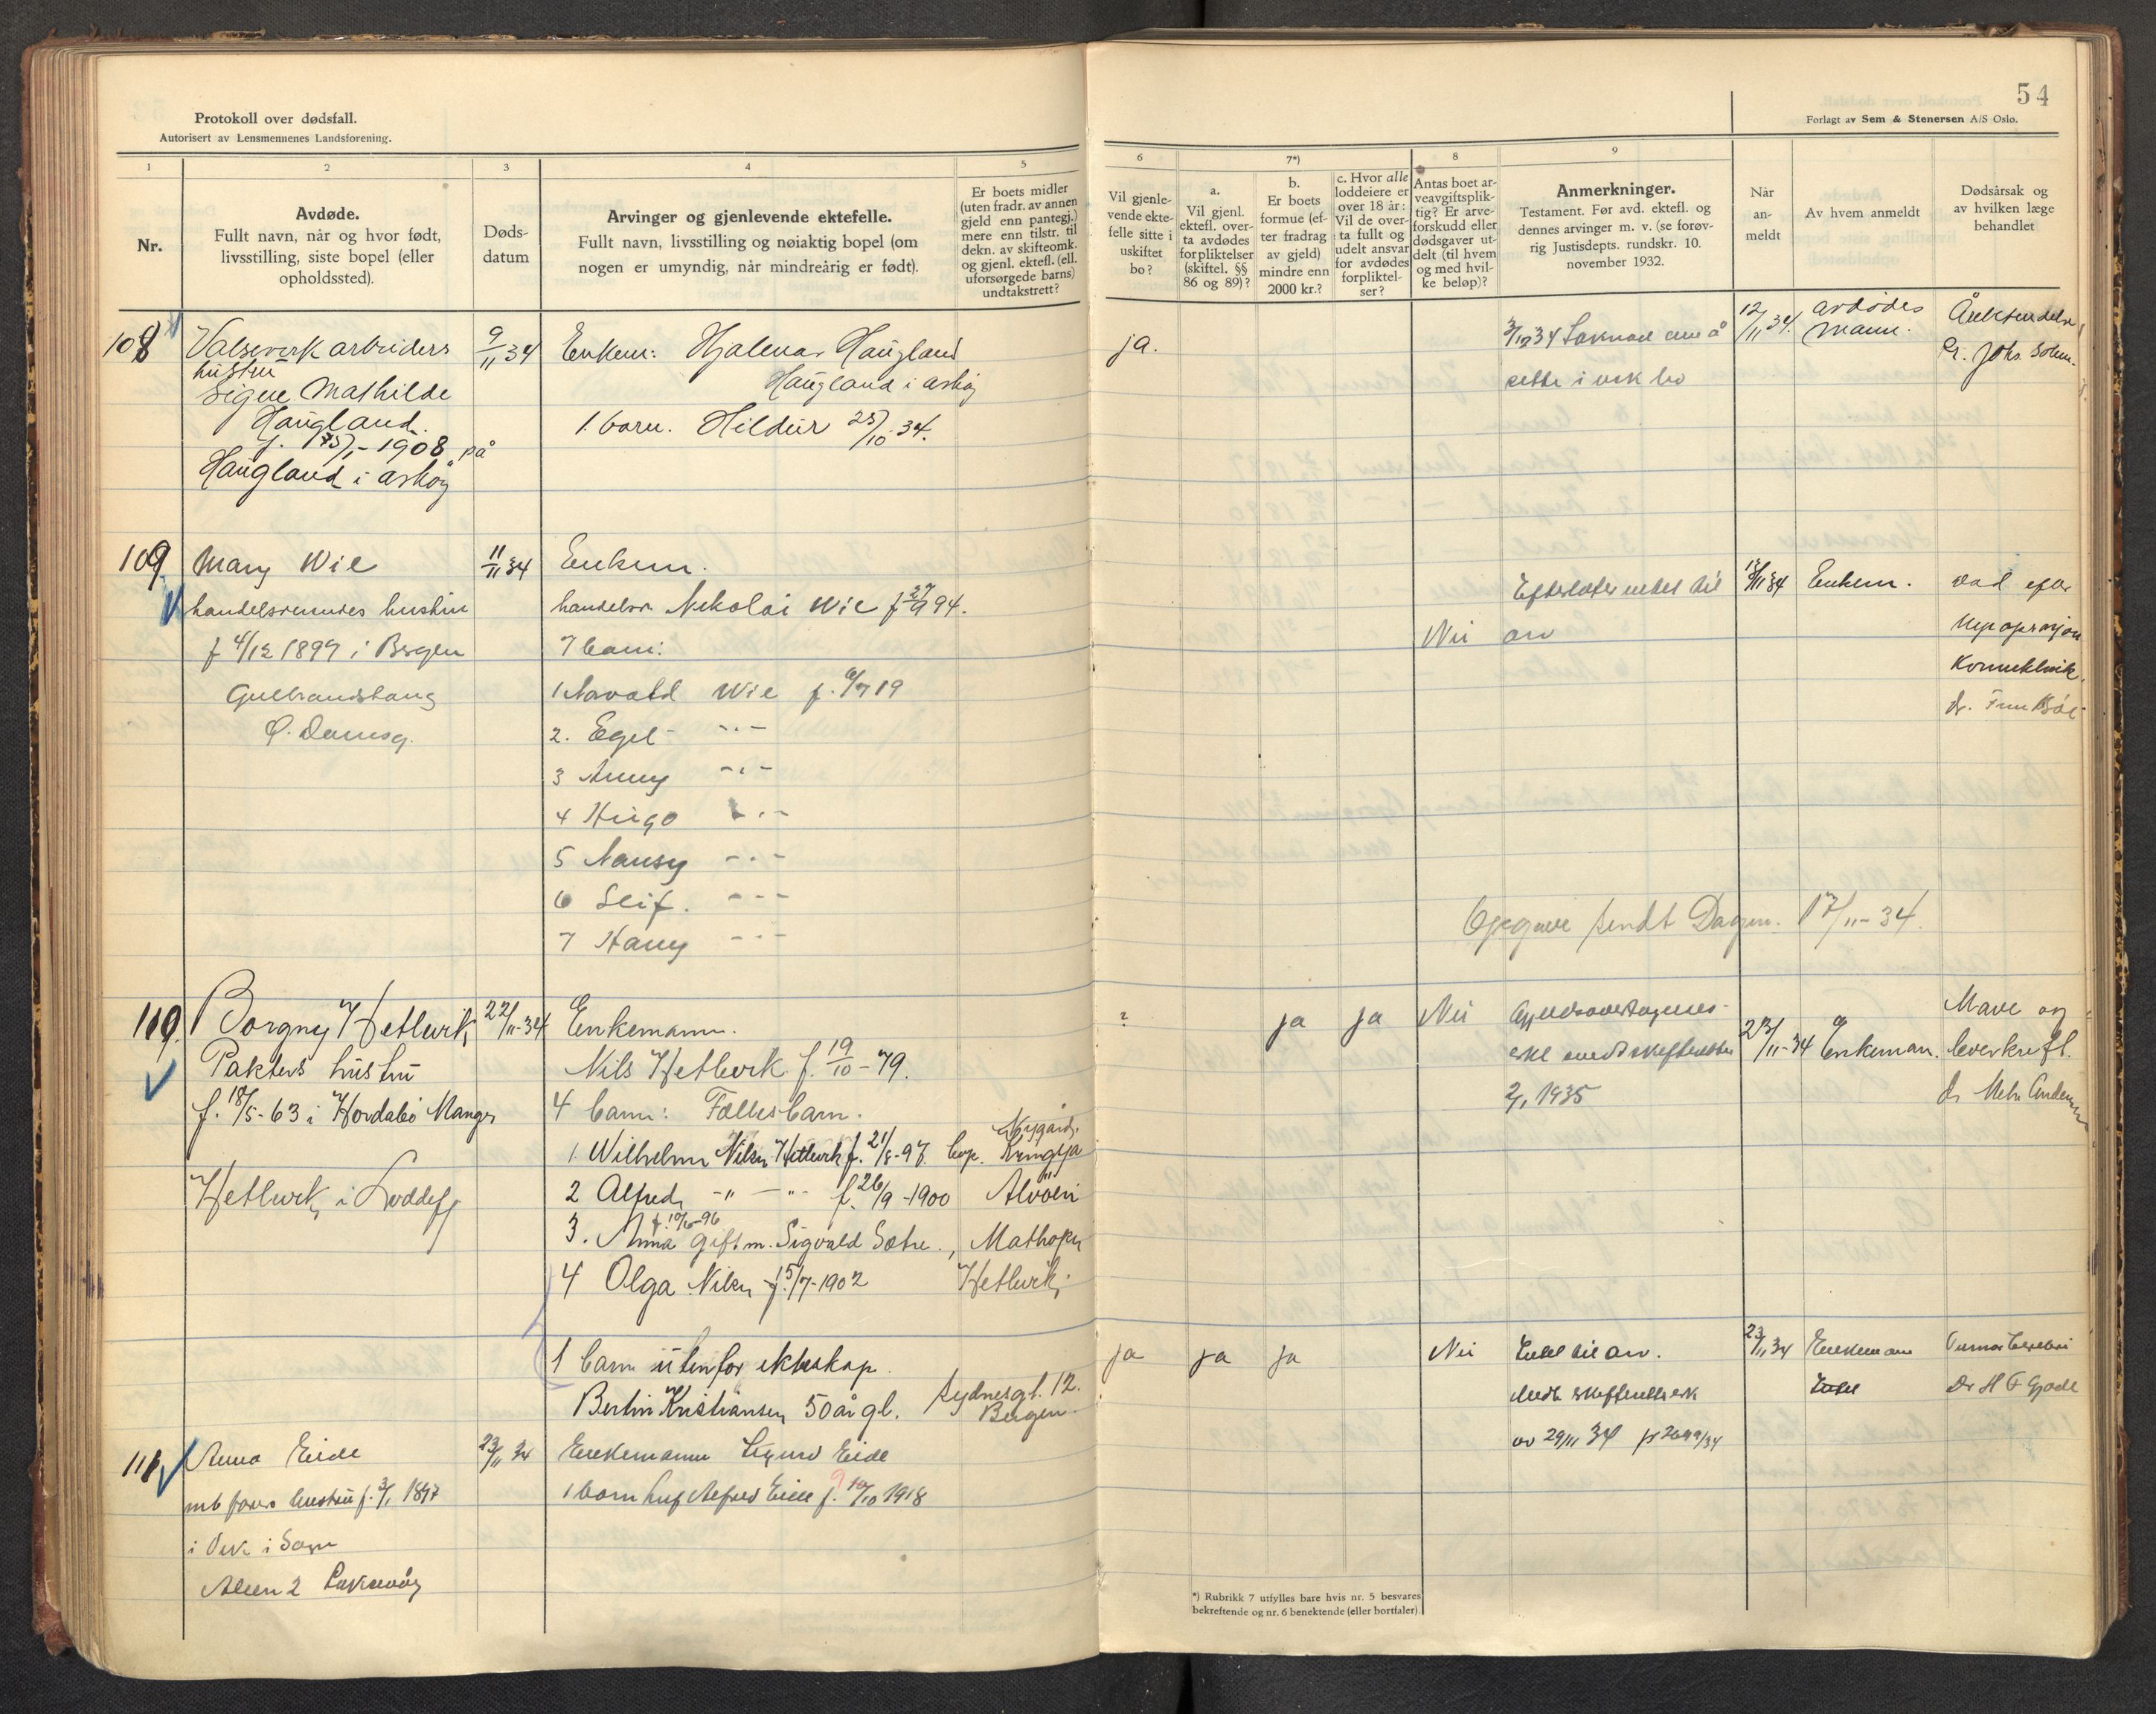 Protokoll over dødsfall.
Autorisert av Lensmennenes Landsforening.
54
Forlagt av Sem & Stenersen A/S Oslo.
1
2
3
4
5
6
7*)
8
9
Nr.
Avdøde.
Fullt navn, når og hvor født,
livsstilling, siste bopel (eller
opholdssted).
Døds-
datum
Arvinger og gjenlevende ektefelle.
Fullt navn, livsstilling og nøiaktig bopel (om
nogen er umyndig, når mindreårig er født).
Er boets midler
(uten fradr. av annen
gjeld enn pantegj.)
mere enn tilstr. til
dekn. av skifteomk.
og gjenl. ektefl. (ell.
uforsørgede barns)
undtakstrett?
Vil gjenle-
vende ekte-
felle sitte i
uskiftet
bo?
a.
Vil gjenl.
ektefl. over-
ta avdødes
forpliktelser
(skiftel. §§
86 og 89)?
b.
Er boets
formue (ef-
ter fradrag
av gjeld)
mindre enn
2000 kr.?
c. Hvor alle
loddeiere er
over 18 år:
Vil de over-
ta fullt og
udelt ansvar
for avdødes
forpliktel-
ser?
Antas boet ar-
veavgiftsplik-
tig? Er arve-
forskudd eller
dødsgaver ut-
delt (til hvem
og med hvil-
ke beløp)?
Anmerkninger.
Testament. Før avd. ektefl. og
dennes arvinger m. v. (se forøv-
rig Justisdepts. rundskr. 10.
november 1932.
Når
an-
meldt
Av hvem anmeldt
Dødsårsak og
av hvilken læge
behandlet
108
Valseverkarbeiders
hustru
Signe Mathilde
Haugland.
1908 på
Haugland i Askøy
9/11 34
Enkem: Hjalmar Haugland
Haugland i Askøy
1 barn. Hildur 25/10 34.
ja.
sette i usk bo
12/11 34.
avdødes
mann.
Dr. Johs. Solem.
109.
Mary Wie
handelsreisendes hustru
f 4/12 1899 i Bergen
Ø. Damsg.
11/11 34
Enkem.
handelsr. Nikolai Wie f 27/9 94.
7 barn:
1 Wie f. 6/7 19
2. Egil - " -
3 Anny - " -
4 Hugo - " -
5 Nansy - " -
6 Leif. - " -
7 Harry - " -
Nei
Efterlater intet til
arv
Enkem.
ved
Kvinneklinik.
Opgave sendt Dagen. 17/11-34.
110.
Borgny Hetlevik,
Pakters hustru
f. 18/5-63 i Hordabø Manger
Hetlevik, i Loddefj
22/11-34
Enkemann.
Nils Hetlevik f. 19/10-79.
4 barn: Fellesbarn.
1. Wilhelm Nilsen Hetlevik f. 21/8-97. bop. Kringsja
Nygårds.
2 Alfred, - " - - " - f. 26/9-1900 Alvøen
3. Anna f. 10/6-96 gift m. Sigvald Sætre., Mathopen
4 Olga Nilsen f. 5/7-1902 Hetlevik,
1 barn utenfor ekteskap.
Bertin Kristiansen, 50 år gl. Sydnesgt. 12.
Bergen.
?
ja
ja
Nei
2/1 1935
23/11-34
Enkeman.
Mave og
leverkreft.
111
Anna Eide
hustru f. 3/1 1897
Aleen 2 Laksevåg
23/11 34
Enkemann Sigurd Eide
1 barn Leif Alfred Eide f. 10/10 1918
ja
ja
ja
Nei
Intet til arv.
Meddt skifteretten
av 29/11 34
23/11 34
Enkemann
Intet
Dr H F Gjade
*) Rubrikk 7 utfylles bare hvis nr. 5 besvares
bekreftende og nr. 6 benektende (eller bortfaler).